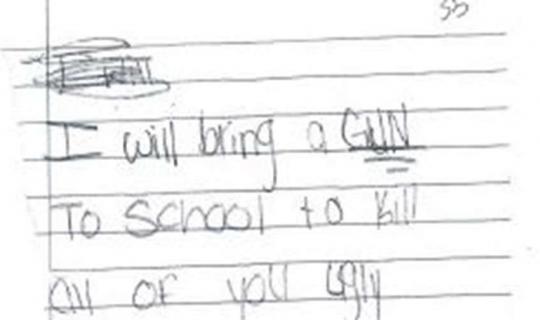 I will bring a GUN
To School to kill
all of you ugly